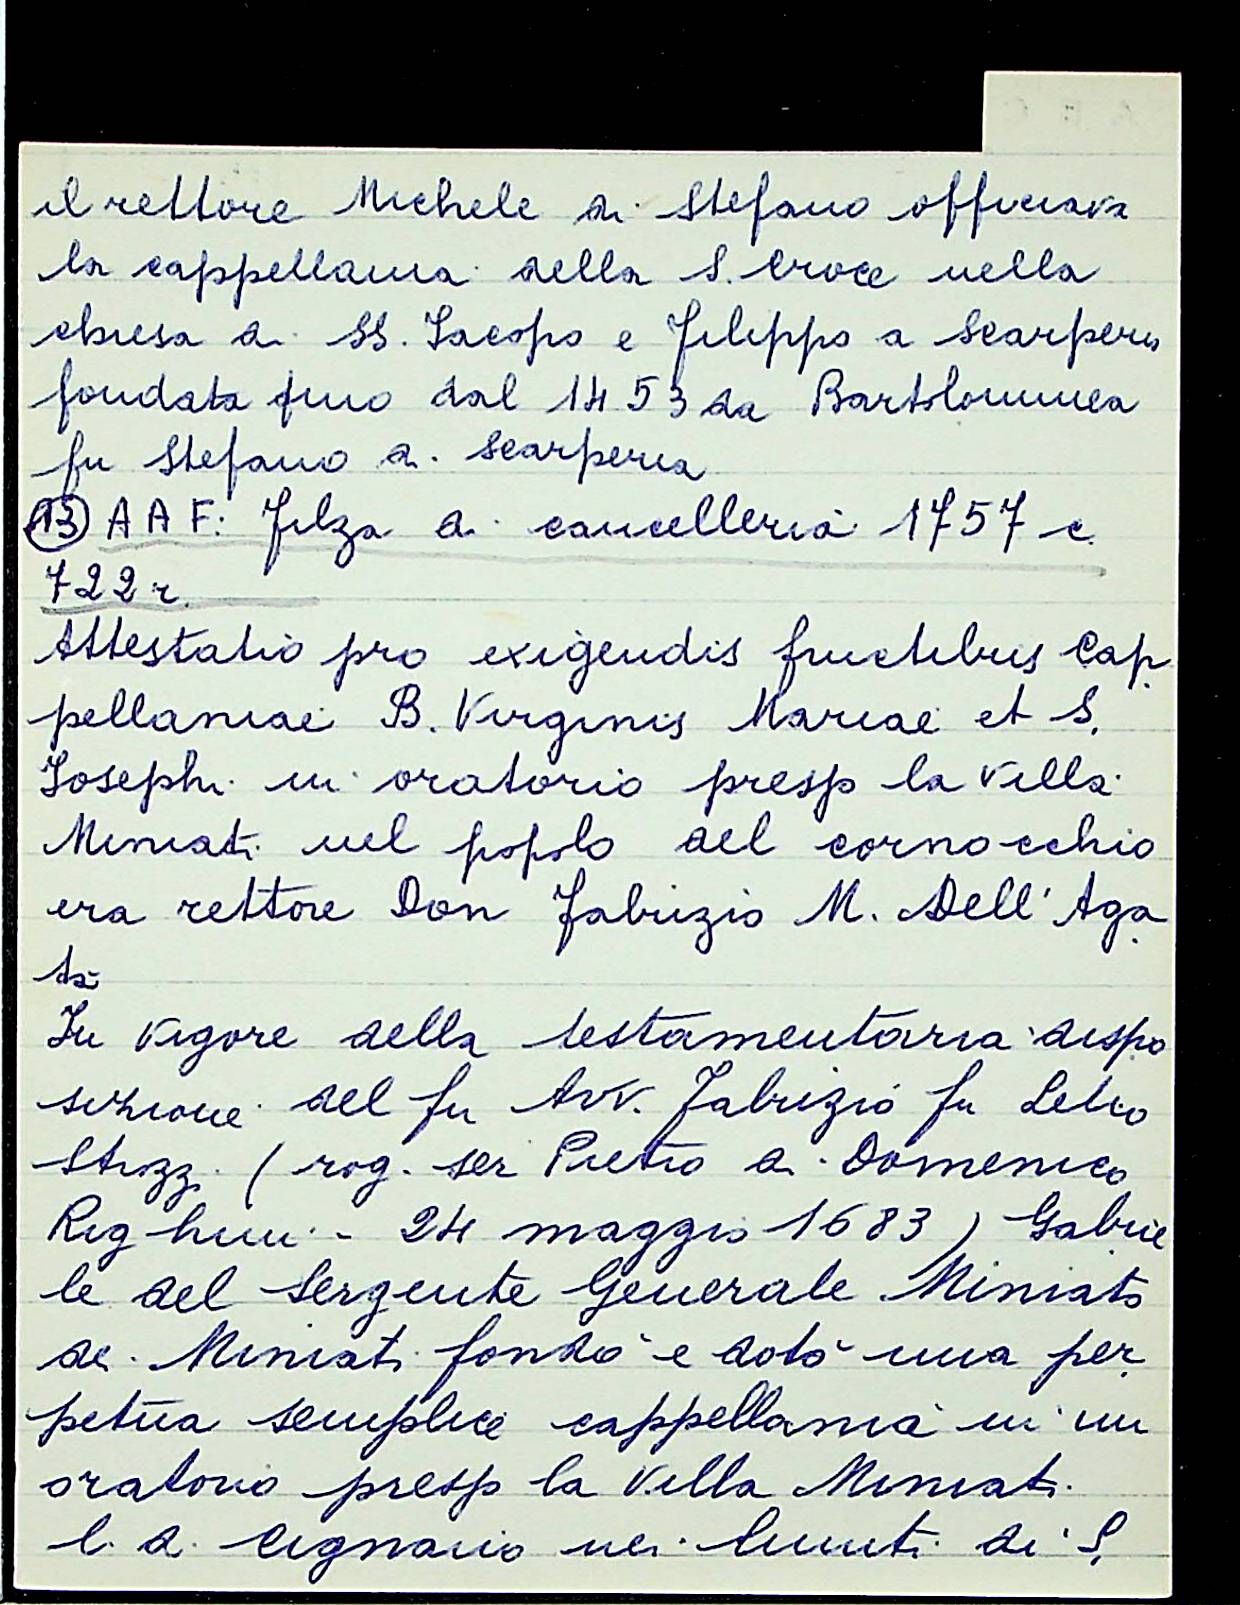 il rettore Michele di Stefano officiava
la cappellania della S. Croce nella
chiesa di SS. Iacopo e Filippo a Scarperia
fondata fino dal 1453 da Bartolommea
fu Stefano di Scarperia
13 AAF: Filza di cancelleria 1757 c.
722 r.
Attestatio pro exigendis fructibus Cap
pellaniae B. Virginis Mariae et S.
Josephi in oratorio presso la villa
Miniati nel popolo del cornocchio
era rettore Don Fabrizio M. Dell'Aga
ta
In vigore della testamentaria dispo
sizione del fu Avv. Fabrizio fu Lelio
Strozzi (rog. ser Pietro di Domenico
Righini - 24 maggio 1683) Gabrie
le del Sergente Generale Miniato
dei Miniati fondò e dotò una per
petua semplice cappellania in un
oratorio presso la Villa Miniati
l. d. Cignano nei limiti di S.